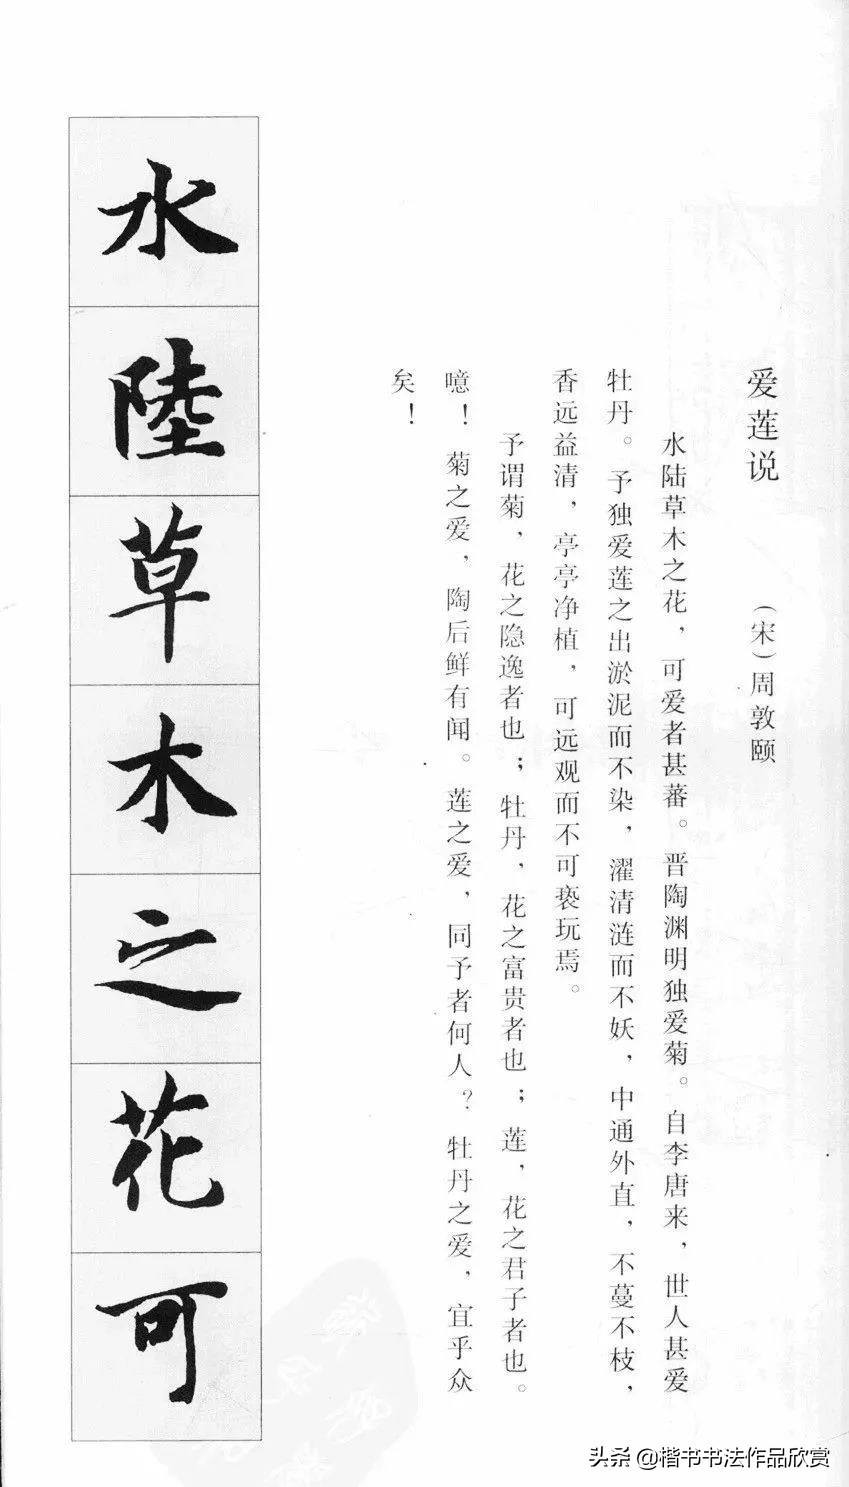 爱莲说 （宋）周敦颐
水陆草木之花，可爱者甚蕃。晋陶渊明独爱菊。自李唐来，世人甚爱
牡丹。予独爱莲之出淤泥而不染，濯清涟而不妖，中通外直，不蔓不枝，
香远益清，亭亭净植，可远观而不可亵玩焉。
予谓菊，花之隐逸者也；牡丹，花之富贵者也；莲，花之君子者也。
噫！菊之爱，陶后鲜有闻。莲之爱，同予者何人？牡丹之爱，宜乎众
矣！
水陸草木之花可
头条 @楷书书法作品欣赏